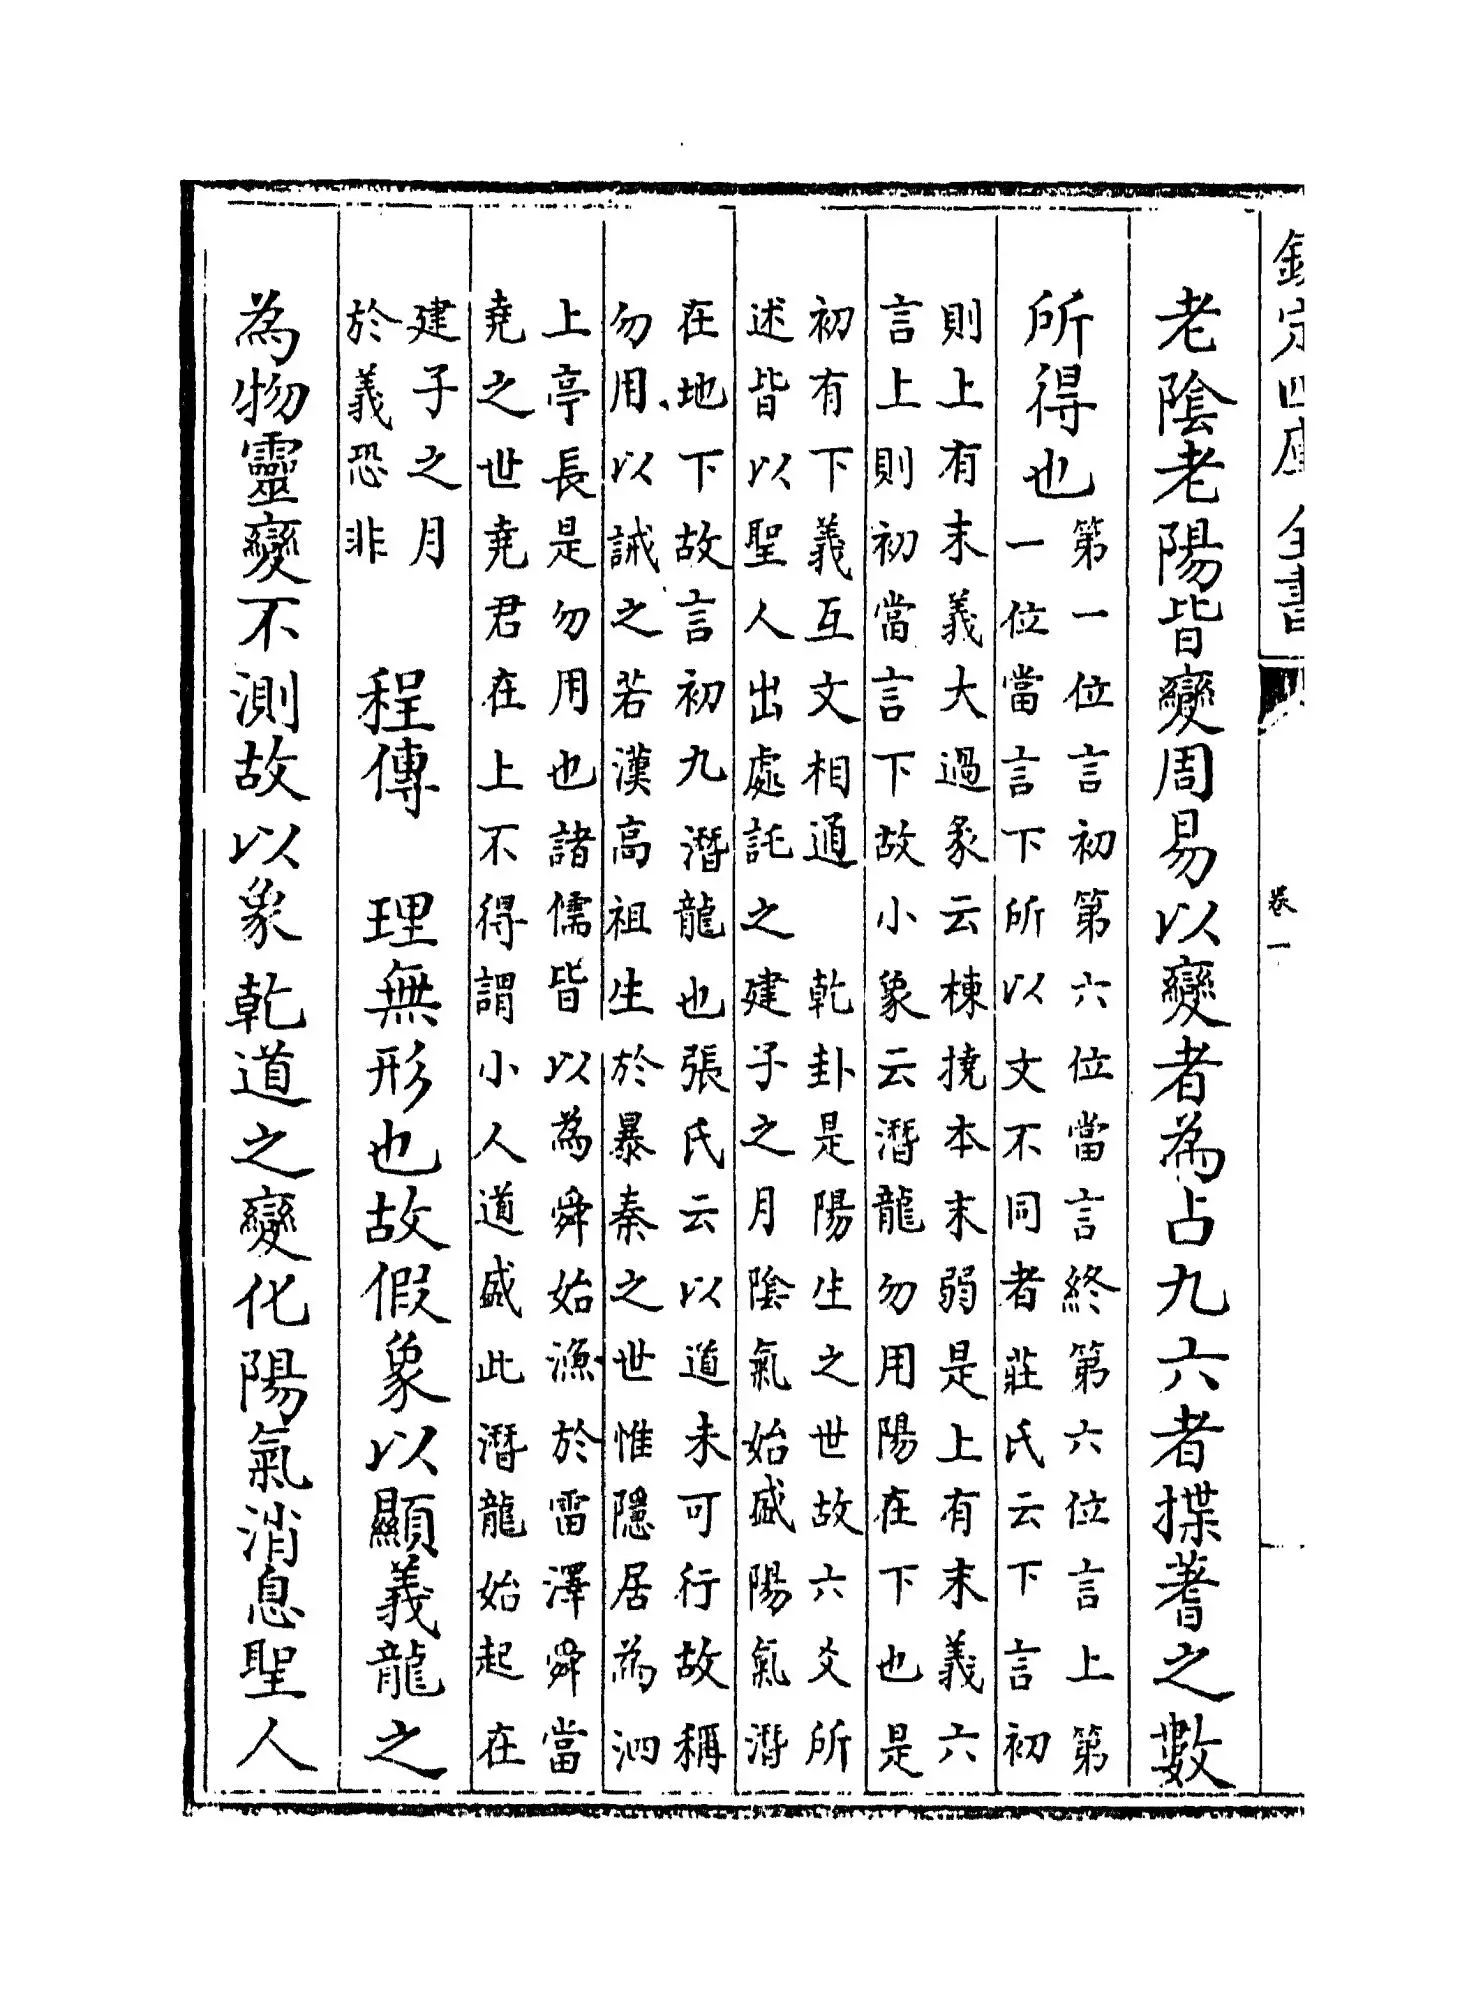 欽定四庫全書
卷一
老陰老陽皆變周易以變者為占九六者揲蓍之數
所得也
第一位言初第六位當言終第六位言上第
一位當言下所以文不同者莊氏云下言初
則上有末義大過彖云棟撓本末弱是上有末義六
言上則初當言下故小象云潛龍勿用陽在下也是
初有下義互文相通
述皆以聖人出處託之
乾卦是陽生之世故六爻所
建子之月陰氣始盛陽氣潛
在地下故言初九潛龍也張氏云以道未可行故稱
勿用以誡之若漢高祖生於暴秦之世惟隱居為泗
上亭長是勿用也諸儒皆以為舜始漁於雷澤舜當
堯之世堯君在上不得謂小人道盛此潛龍始起在
建子之月
於義恐非
程傳　理無形也故假象以顯義龍之
為物靈變不測故以象乾道之變化陽氣消息聖人